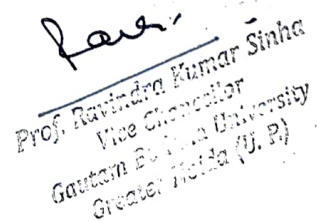 Ravi
Prof. Ravindra Kumar Sinha
Vice Chancellor
Gautam Buddha University
Greater Noida (U. P.)